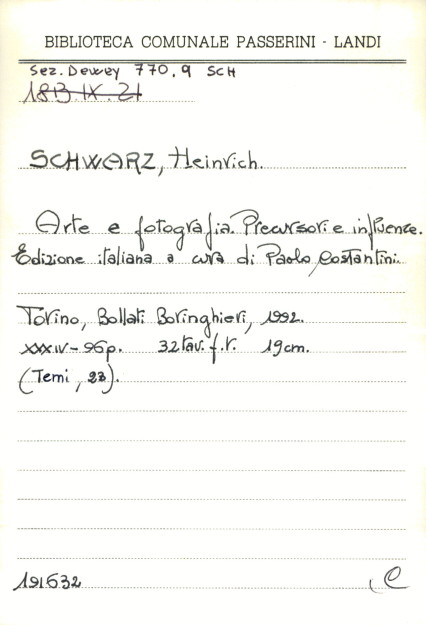 BIBLIOTECA COMUNALE PASSERINI - LANDI
Sez. Dewey 770.9 SCH
18B.IX.21
SCHWARZ, Heinrich.
Arte e fotografia. Precursori e influenze.
Edizione italiana a cura di Paolo Costantini.
Torino, Bollati Boringhieri, 1992.
XXXIV-96p. 32 tav. f.t. 19cm.
(Temi, 23).
191632 C